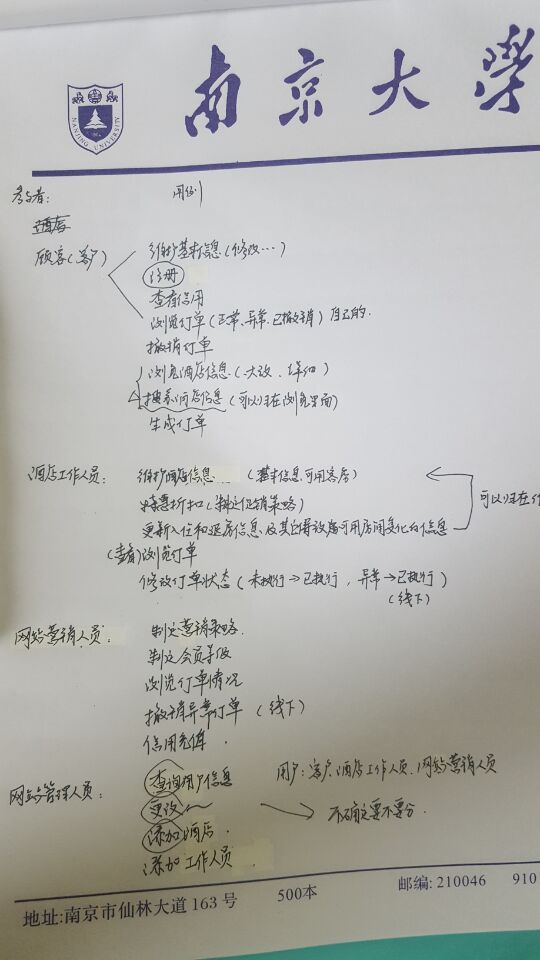 南京大学
NANJING UNIVERSITY
参与者: 用例
酒店
顾客(客户) 维护基本信息(修改…)
注册
查看信用
浏览订单(正常、异常、已撤销)自己的.
撤销订单
浏览酒店信息(大致、详细)
搜索酒店信息(可以归在浏览里面)
生成订单
酒店工作人员: 维护酒店信息 (基本信息,可用客房)
特惠折扣(制定促销策略) 可以归在
更新入住和退房信息,及其它导致房可用房间变化的信息
(查看)浏览订单
修改订单状态(未执行→已执行,异常→已执行)
(线下)
网站营销人员: 制定营销策略.
制定会员等级
浏览订单情况
撤销异常订单(线下)
信用充值.
网站管理人员: 查询用户信息 用户:客户、酒店工作人员、网站营销人员
更改 不确定要不要分.
添加酒店.
添加工作人员
地址:南京市仙林大道163号 500本 邮编: 210046 910